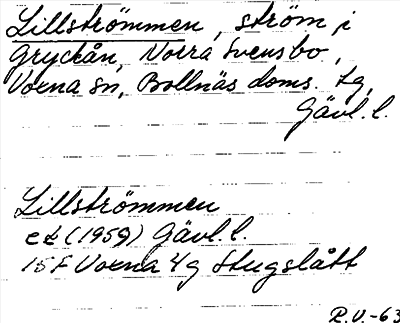 Lillströmmen, ström i
Gryckån, Norra Svensbo,
Voxna sn, Bollnäs doms. Lg,
Gävl. l.
Lillströmmen
ek (1959) Gävl. l.
15F Voxna 4g Stugslått
R.V.-63